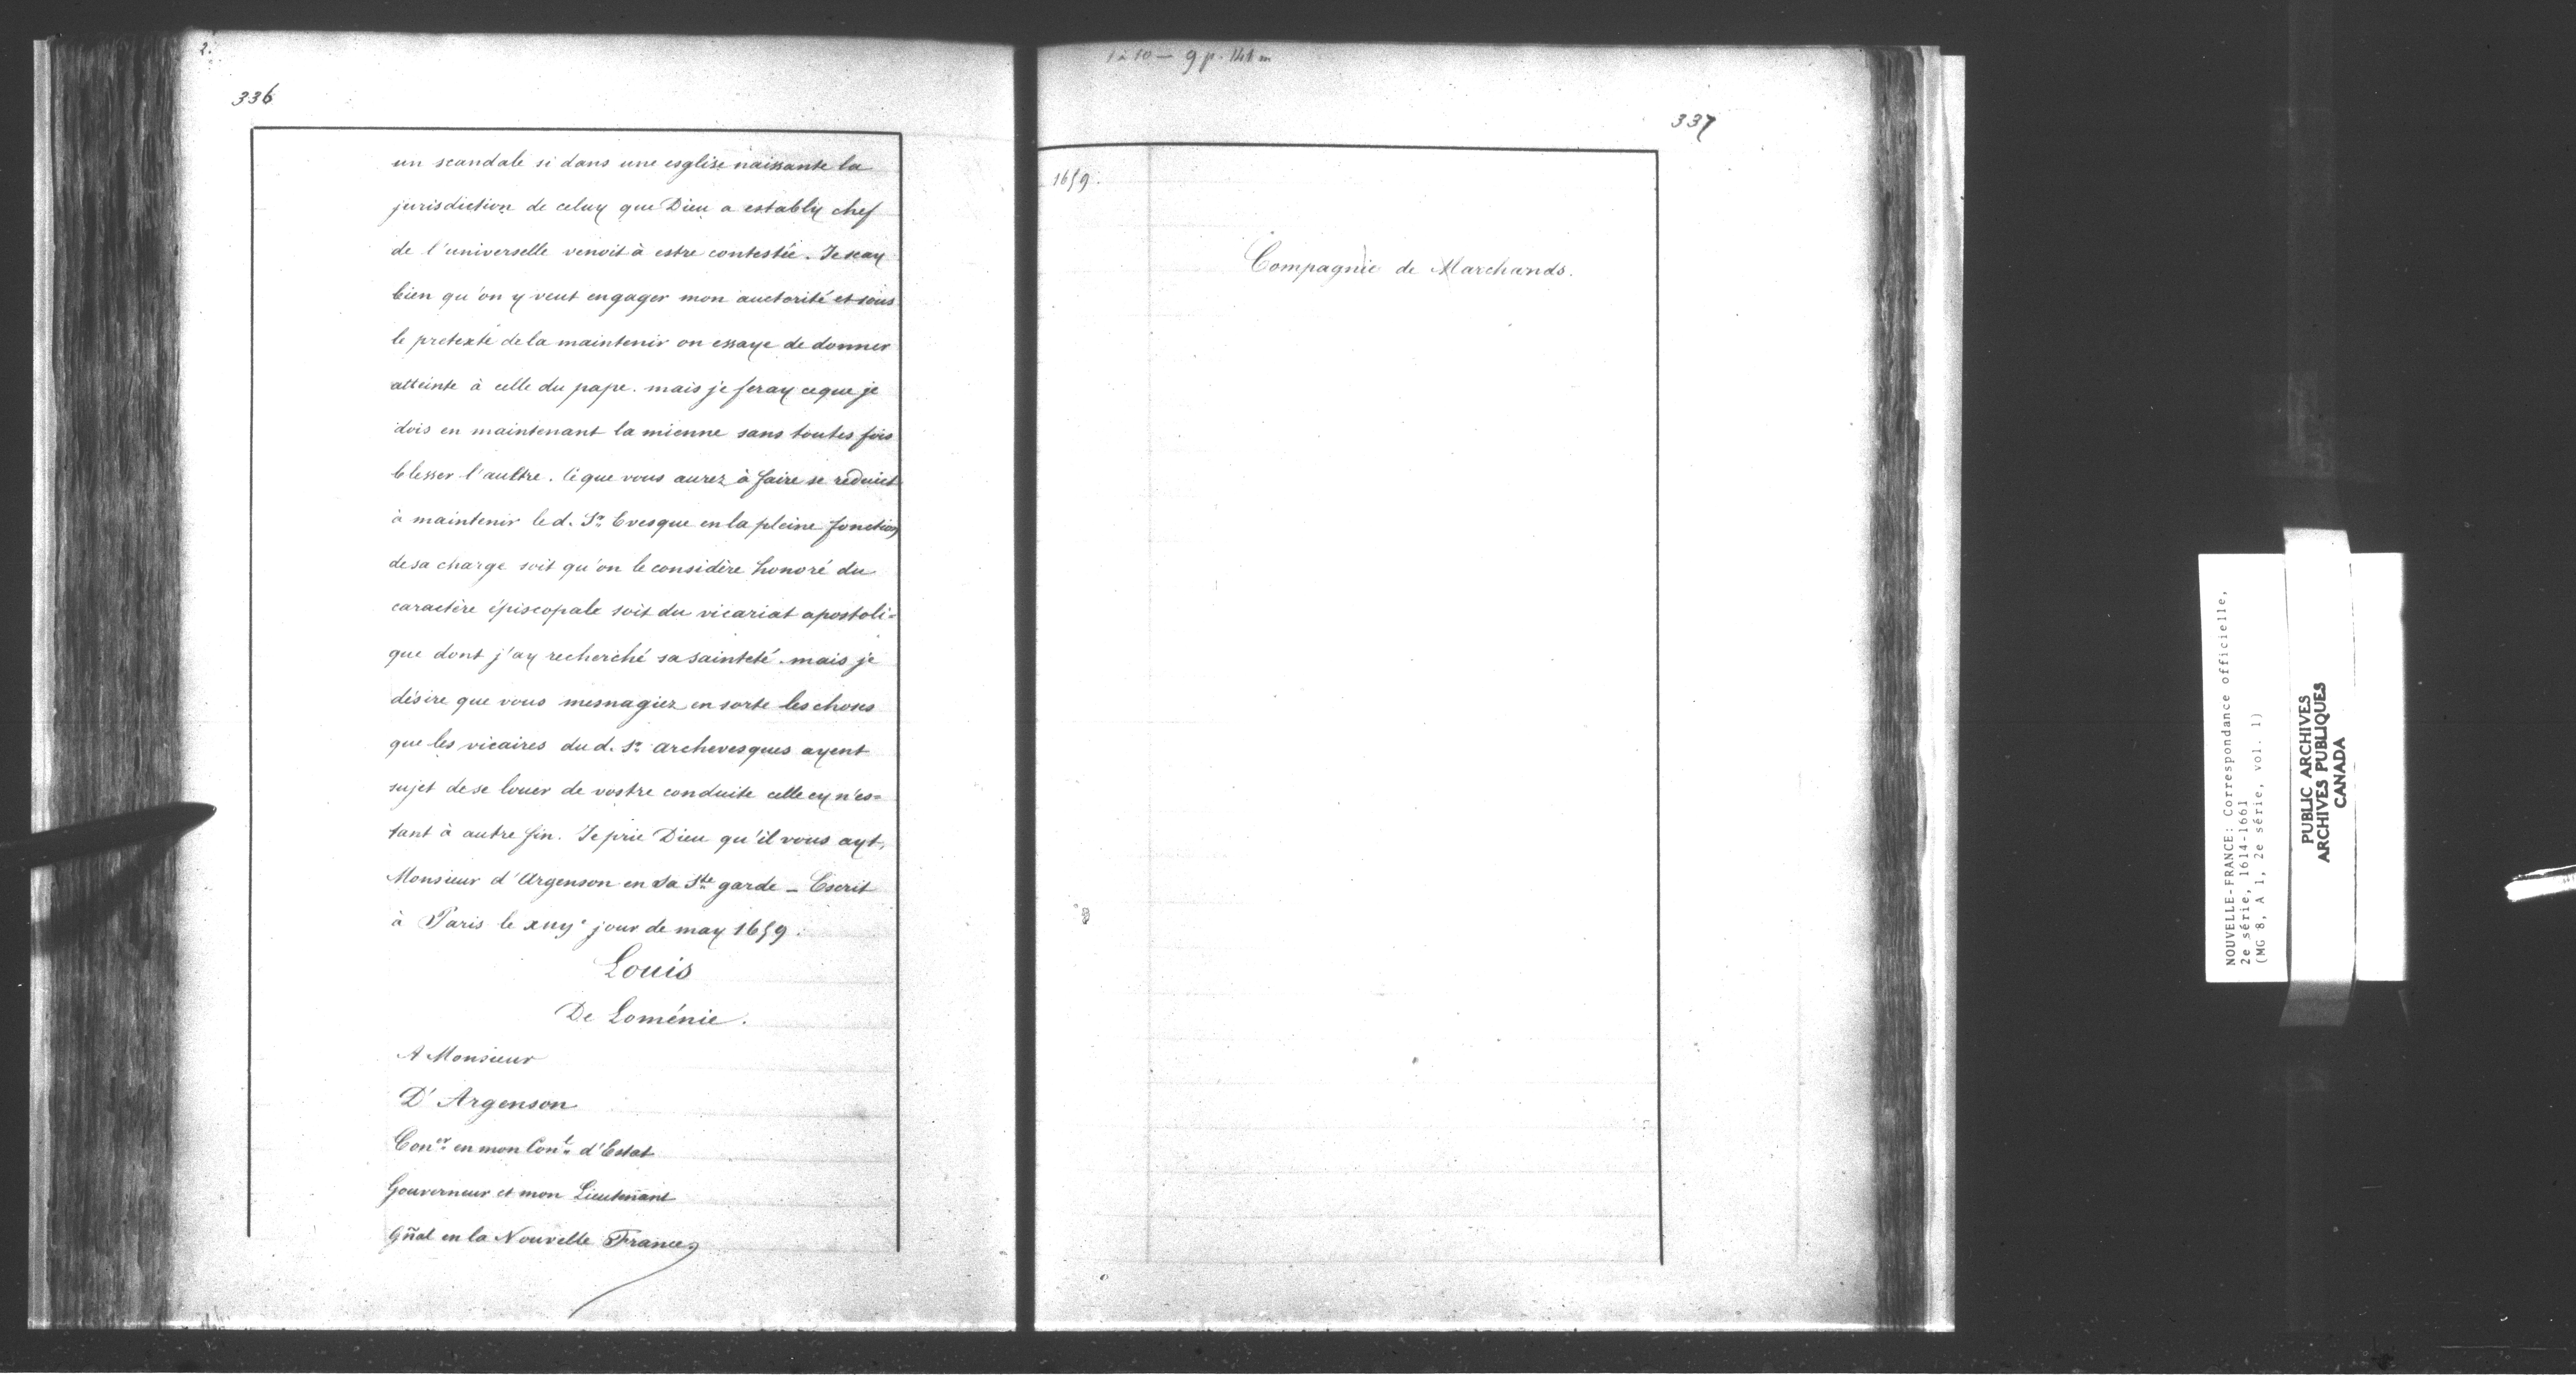 2.
336
un scandale si dans une esglise naissante la
jurisdiction de celuy que Dieu a estably chef
de l'universelle venoit à estre contestée. Je scay
bien qu'on y veut engager mon auctorité et sous
le pretexte de la maintenir on essaye de donner
atteinte à celle du pape. mais je feray ce que je
dois en maintenant la mienne sans toutes fois
blesser l'aultre. Ce que vous aurez à faire se reduict
à maintenir le d. Sr. Evesque en la pleine fonction
de sa charge soit qu'on le considère honoré du
caractère épiscopale soit du vicariat apostoli=
que dont j'ay recherché sa sainteté. mais je
désire que vous mesnagiez en sorte les choses
que les vicaires du d. Sr. archevesques ayent
sujet de se louer de vostre conduite celle cy n'es=
tant à autre fin. Je prie Dieu qu'il vous ayt,
Monsieur d'Argenson en sa Ste garde _ Escrit
à Paris le jour de may 1659.
Louis
De Loménie.
A Monsieur
D'Argenson
Coner. en mon Conl. d'Estat
Gouverneur et mon Lieutenant
Gñal en la Nouvelle France
1 à 10 — 9 p. 141 m
337
1659.
Compagnie de Marchands.
NOUVELLE-FRANCE: Correspondance officielle,
2e série, 1614-1661
(MG 8, A 1, 2e série, vol. 1)
PUBLIC ARCHIVES
ARCHIVES PUBLIQUES
CANADA